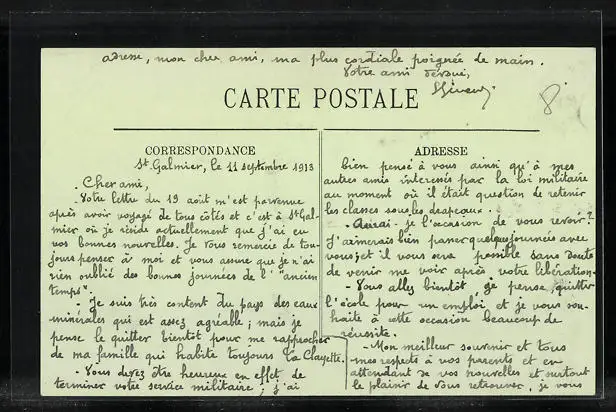 CARTE POSTALE
CORRESPONDANCE
St. Galmier, le 11 septembre 1913
. Cher ami,
. Votre lettre du 19 août m'est parvenue
après avoir voyagé de tous côtés et c'est à St Gal-
mier où je réside actuellement que j'ai eu
vos bonnes nouvelles. Je vous remercie de tou-
jours penser à moi et vous assure que je n'ai
rien oublié des bonnes journées de l' "ancien
temps".
- Je suis très content du pays des eaux
minérales qui est assez agréable ; mais je
pense le quitter bientôt pour me rapprocher
de ma famille qui habite toujours La Clayette.
- Vous devez être heureux en effet de
terminer votre service militaire ; j'ai
ADRESSE
bien pensé à vous ainsi qu'à mes
autres amis intéressés par la loi militaire
au moment où il était question de retenir
les classes sous les drapeaux.
- Aurai-je l'occasion de vous revoir ?
J'aimerais bien passer quelques journées avec
vous ; et il vous sera possible sans doute
de venir me voir après votre libération.
- Vous allez bientôt je pense, quitter
l'école pour un emploi et je vous sou-
haite à cette occasion beaucoup de
réussite.
- Mon meilleur souvenir et tous
mes respects à vos parents et en
attendant de vos nouvelles et surtout
le plaisir de vous retrouver, je vous
adresse, mon cher ami, ma plus cordiale poignée de main.
Votre ami dévoué,
8